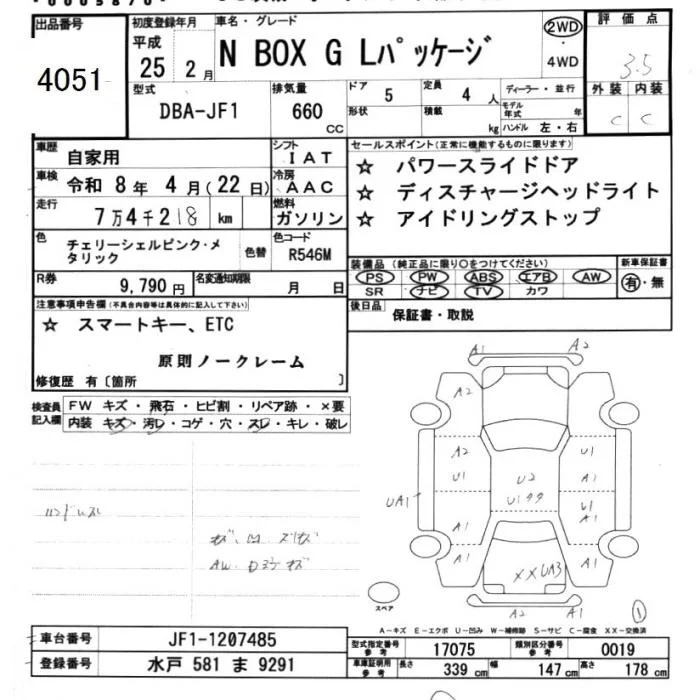 出品番号
4051
初度登録年月
平成
25 2月
車名・グレード
N BOX G Lパッケージ
2WD
・
4WD
評価点
3.5
外装 内装
C C
型式
DBA-JF1
排気量
660
CC
ドア
5
形状
定員
4 人
積載
kg
ディーラー・並行
モデル年式 年
ハンドル 左・右
車歴
自家用
シフト
IAT
車検
令和 8年 4月(22日)
冷房
AAC
走行
7万4千218 km
燃料
ガソリン
色
チェリーシェルピンク・メタリック
色替
色コード
R546M
R券
9,790円
名変通知期限
月 日
セールスポイント(正常に機能するものに限ります)
☆ パワースライドドア
☆ ディスチャージヘッドライト
☆ アイドリングストップ
装備品 (純正品に限り○をつけてください)
PS PW ABS エアB AW
SR ナビ TV カワ
新車保証書
有・無
後日品
保証書・取説
注意事項申告欄(不具合内容等は具体的に記入して下さい)
☆ スマートキー、ETC
原則ノークレーム
修復歴 有〔箇所 〕
検査員記入欄
FW キズ・飛石・ヒビ割・リペア跡・×要
内装 キズ・汚レ・コゲ・穴・スレ・キレ・破レ
A1 A2
A2
A2 U1
U1 U2 A1
UA1 U1
A1 A1
A1 A1
XXUA3
A2 A1
スペア
1
A-キズ E-エクボ U-凹み W-補修跡 S-サビ C-腐食 XX-交換済
車台番号
JF1-1207485
登録番号
水戸 581 ま 9291
型式指定番号
参考
17075
類別区分番号
参考
0019
車庫証明用
参考
長さ
339 cm
幅
147 cm
高さ
178 cm